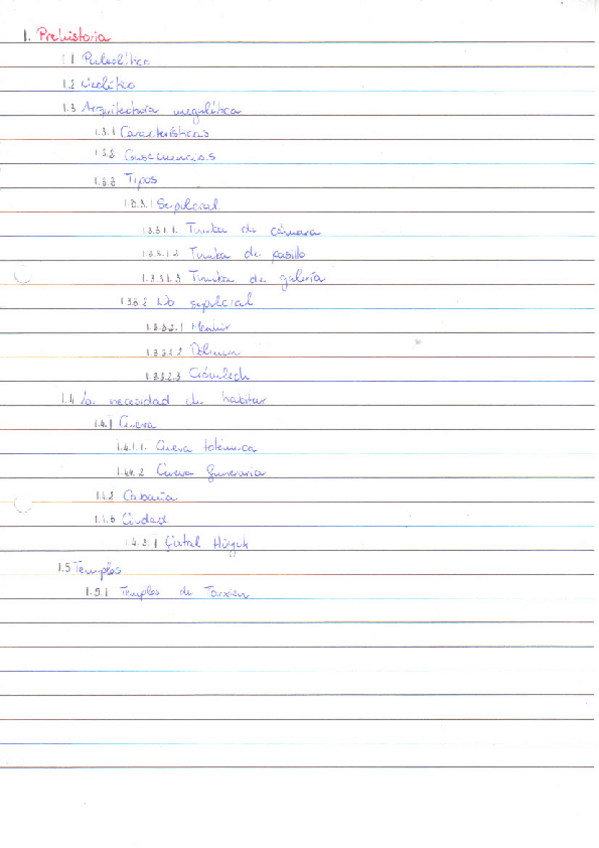 1. Prehistoria
1.1 Paleolítico
1.2 Neolítico
1.3 Arquitectura megalítica
1.3.1 Características
1.3.2 Consecuencias
1.3.3 Tipos
1.3.3.1 Sepulcral
1.3.3.1.1. Tumba de cámara
1.3.3.1.2 Tumba de pasillo
1.3.3.1.3 Tumba de galería
1.3.3.2 No sepulcral
1.3.3.2.1 Menhir
1.3.3.2.2 Dólmen
1.3.3.2.3 Crómlech
1.4 La necesidad de habitar
1.4.1 Cueva
1.4.1.1. Cueva totémica
1.4.1.2 Cueva funeraria
1.4.2 Cabaña
1.4.3 Ciudad
1.4.3.1 Çatal Hüyük
1.5 Templos
1.5.1 Templos de Tarxien